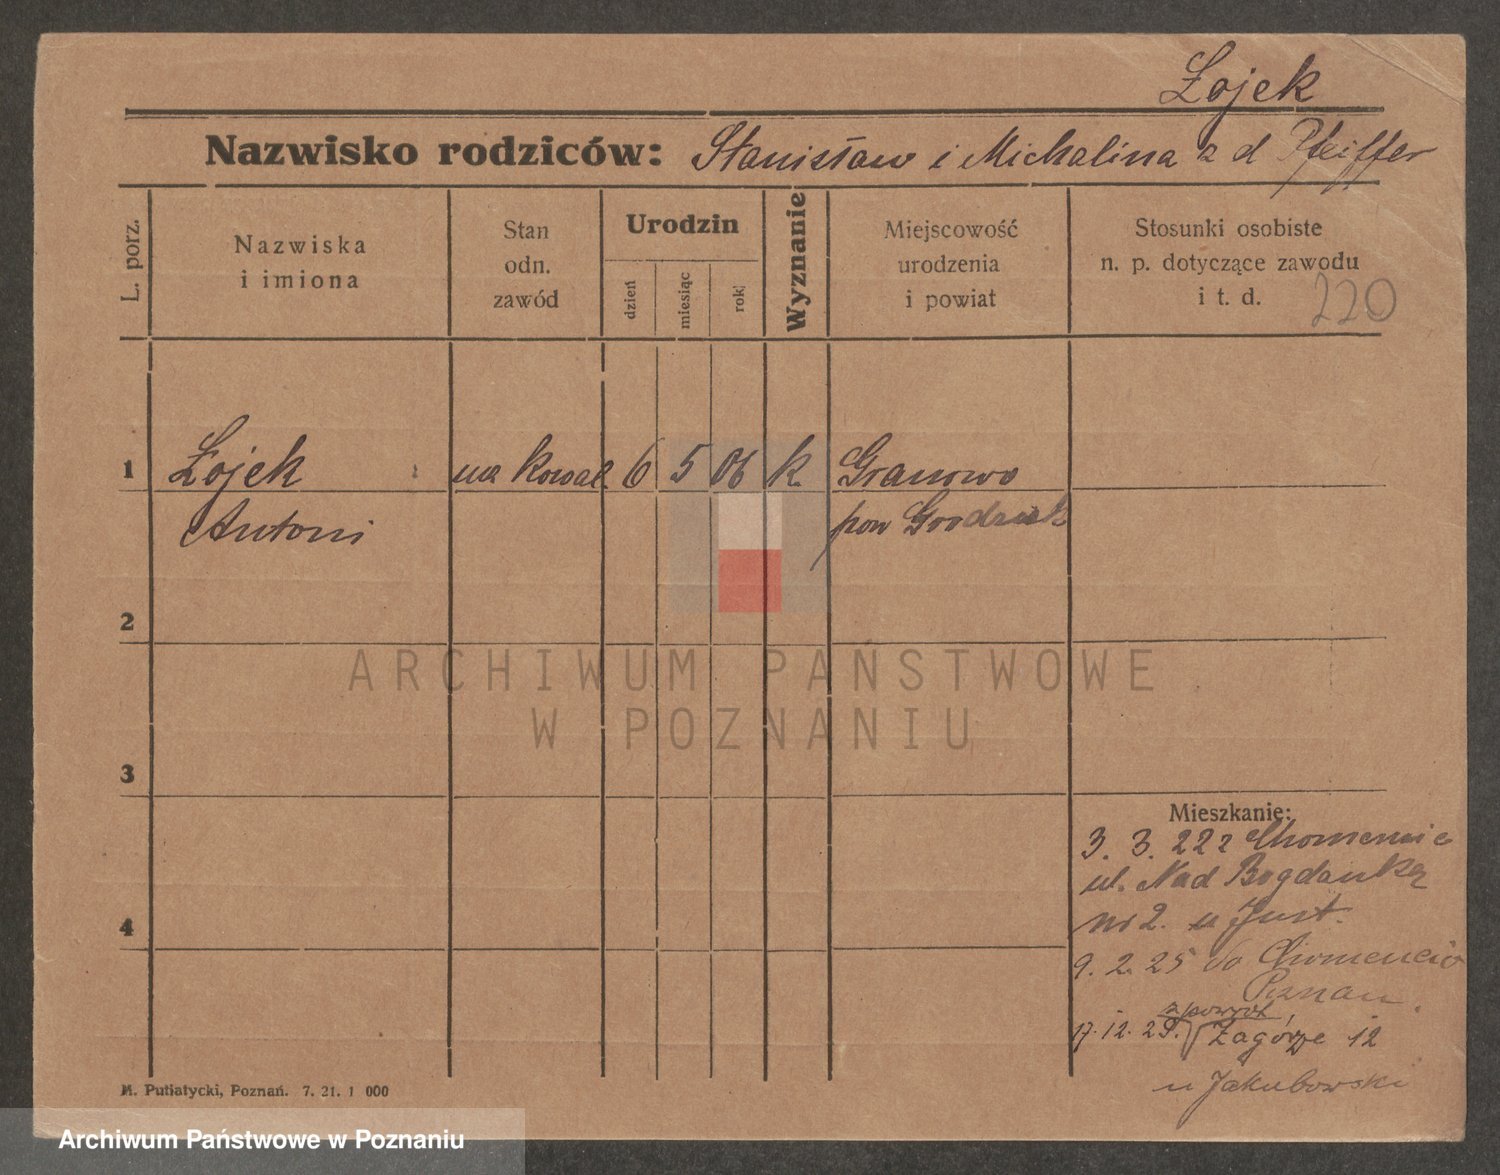 Łojek
Nazwisko rodziców: Stanisław i Michalina z d Pfeiffer
L. porz.
Nazwiska
i imiona
Stan
odn.
zawód
Urodzin
dzień
miesiąc
rok
Wyznanie
Miejscowość
urodzenia
i powiat
Stosunki osobiste
n. p. dotyczące zawodu
i t. d.
220
1
Łojek
Antoni
ucz kowal.
6
5
06
k.
Granowo
pow Grodzisk
2
3
4
Mieszkanie:
3. 3. 22 z
ul. Nad Bogdanką
nr 2. u Just.
9. 2. 25 do
Poznań.
z powrot,
17. 12. 25. Zagórze 12
u Jakubowski
M. Putiatycki, Poznań. 7. 21. 1 000
ARCHIWUM PAŃSTWOWE
W POZNANIU
Archiwum Państwowe w Poznaniu